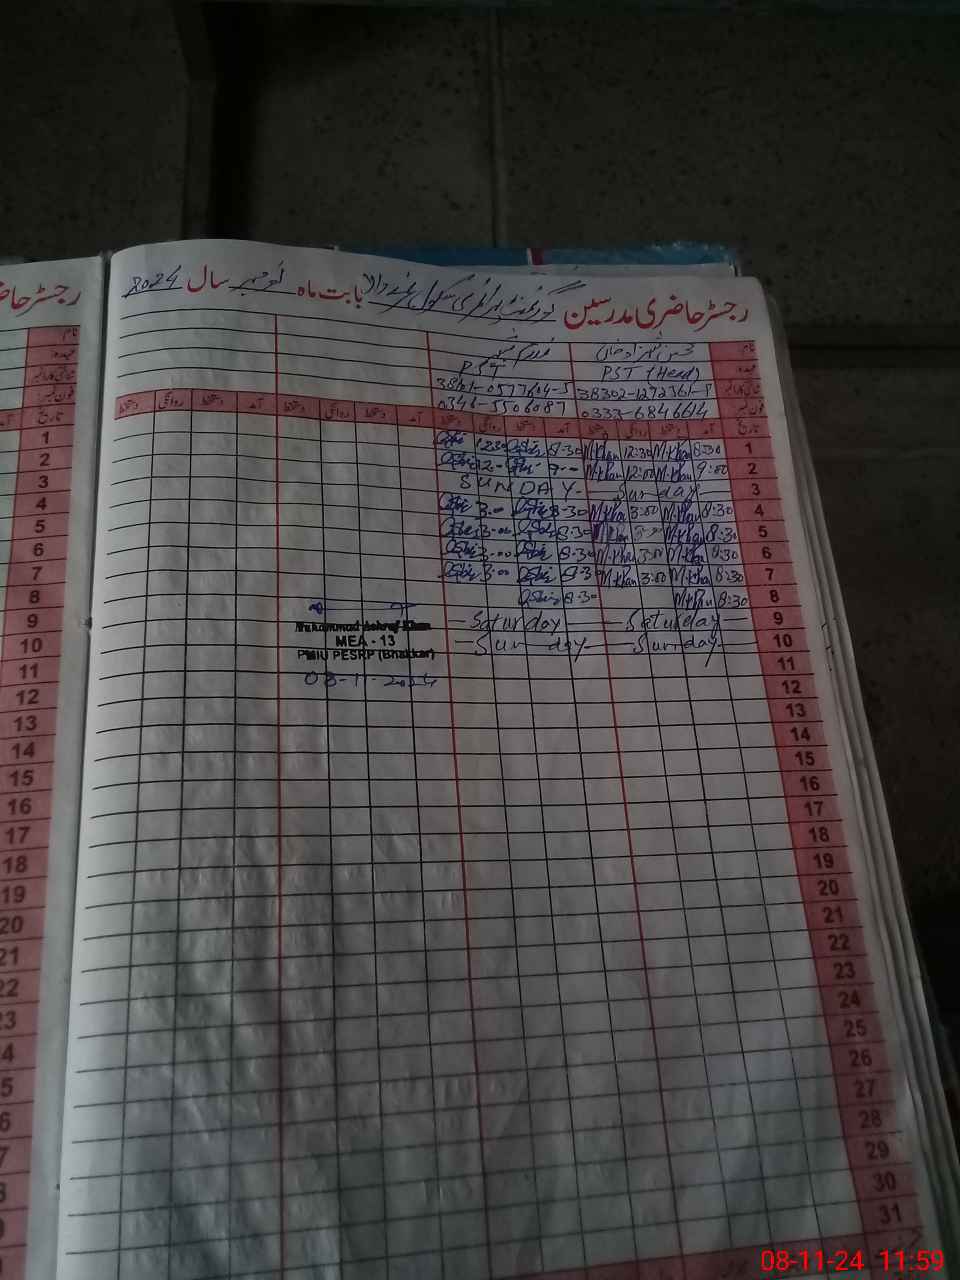 رجسٹر حاضری مدرسین گورنمنٹ پرائمری سکول بابت ماہ نومبر سال 2024
نام
عہدہ PST (Head) PST
شناختی کارڈ نمبر 38302-1272361-9
فون نمبر 0333-6846614 0346-5506087
تاریخ آمد دستخط روانگی دستخط آمد دستخط روانگی دستخط آمد دستخط روانگی دستخط آمد دستخط روانگی دستخط
1 8:30 M.Khan 12:30 M.Khan 8-30 12:30
2 9:00 M.Khan 12:00 M.Khan 9-- 12-
3 Sunday SUNDAY
4 8:30 M.Khan 3:00 M.Khan 8-30 3.00
5 8:30 M.Khan 3:00 M.Khan 8-30 3-00
6 8:30 M.Khan 3:00 M.Khan 8-30 3-00
7 8:30 M.Khan 3:00 M.Khan 8-30 3-00
8 8:30 M.Khan 8-30
9 Saturday Saturday
10 Sunday Sunday
Muhammad Ashraf Khan
MEA - 13
PMIU PESRP (Bhakkar)
08-11-2024
11
12
13
14
15
16
17
18
19
20
21
22
23
24
25
26
27
28
29
30
31
08-11-24 11:59